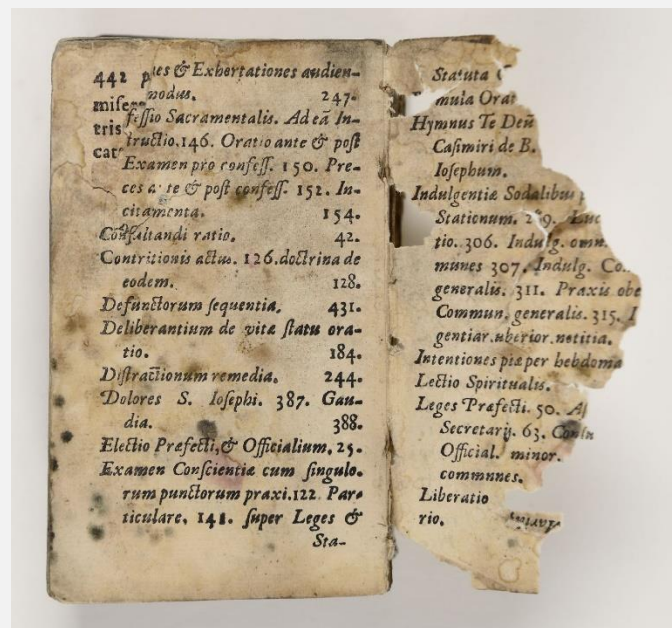 442 es & Exhortationes audien-
modus. 247.
mise
fessio Sacramentalis. Ad eā In-
tris
tructio, 146. Oratio ante & post
cat
Examen pro confess. 150. Pre-
ces a te & post confess. 152. In-
citamenta. 154.
Consultandi ratio. 42.
Contritionis actus. 126. doctrina de
eodem. 128.
Defunctorum sequentia. 431.
Deliberantium de vitæ statu ora-
tio. 184.
Distractionum remedia. 244.
Dolores S. Iosephi. 387. Gau-
dia. 388.
Electio Præfecti, & Officialium, 25.
Examen Conscientiæ cum singulo-
rum punctorum praxi. 122. Par-
ticulare, 141. super Leges &
Sta-
Statuta
mula Orat
Hymnus Te Deū
Casimiri de B.
Iosephum.
Indulgentiæ Sodalibus
Stationum.
tio. 306. Indulg. omn.
munes 307. Indulg. Co
generalis. 311. Praxis obe
Commun. generalis. 315. I
gentiar. uberior notitia.
Intentiones piæ per hebdoma
Lectio Spiritualis.
Leges Præfecti. 50. A
Secretarij. 63.
Official. minor.
communes.
Liberatio
rio.